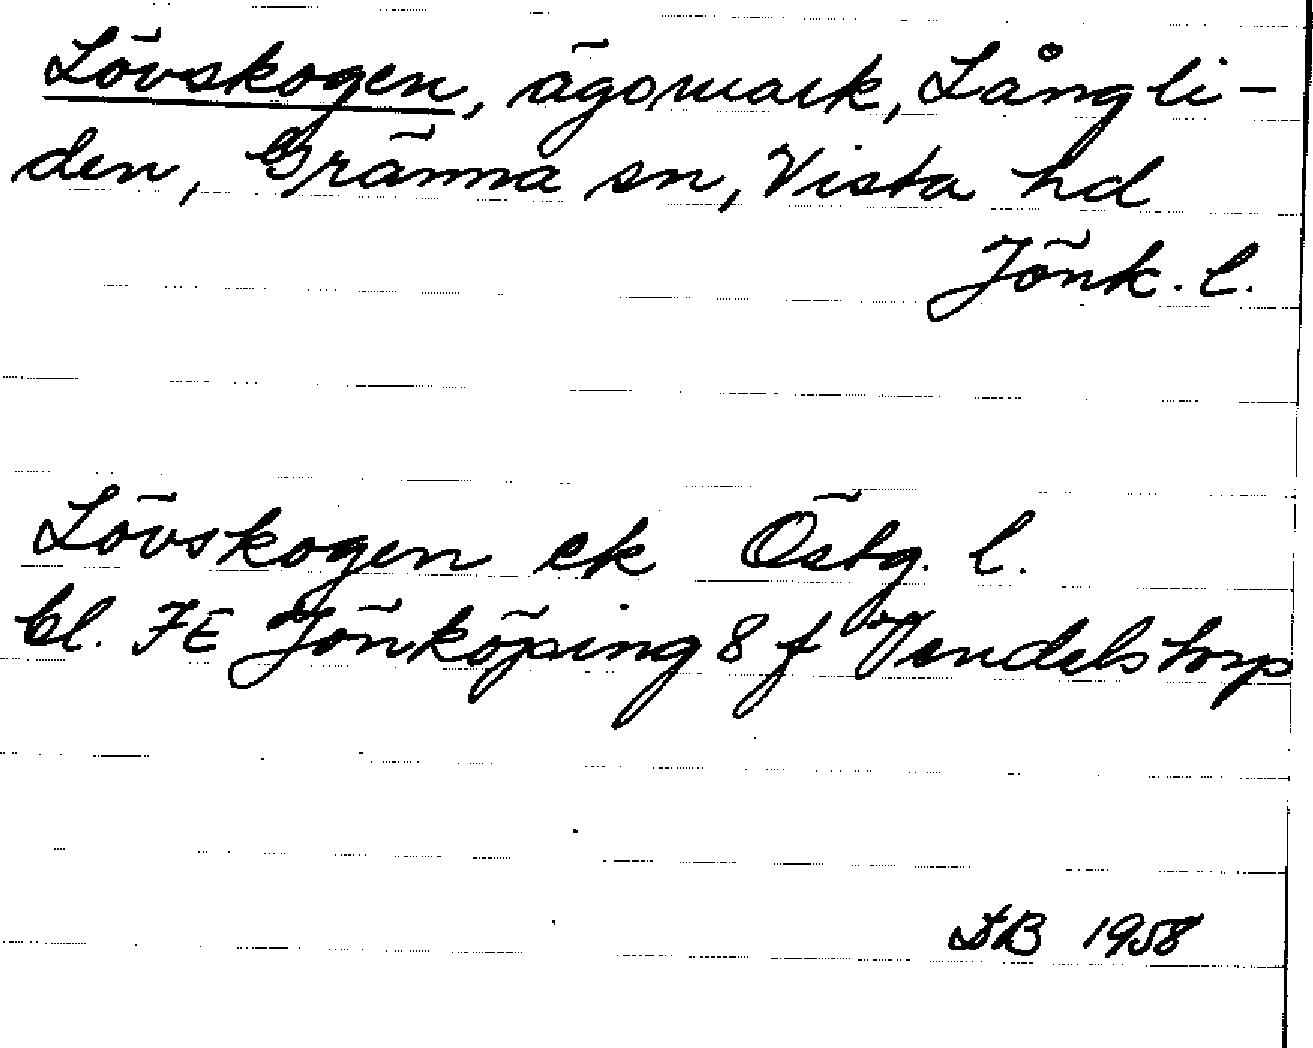 Lövskogen, ägomark, Långli-
den, Gränna sn, Vista hd
Jönk. l.
Lövskogen ek Östg. l.
bl. 7E Jönköping 8 f Vendelstorp
LB 1958